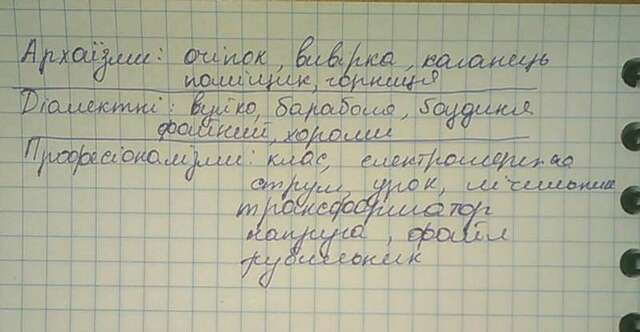 Архаїзми: очіпок, вивірка, каганець
поміщик, горниця
Діалектні: вуйко, бараболя, боудиня
файний, хороми
Професіоналізми: клас, електромережа
струм, урок, лічильник
трансформатор
напруга, файл
рубильник